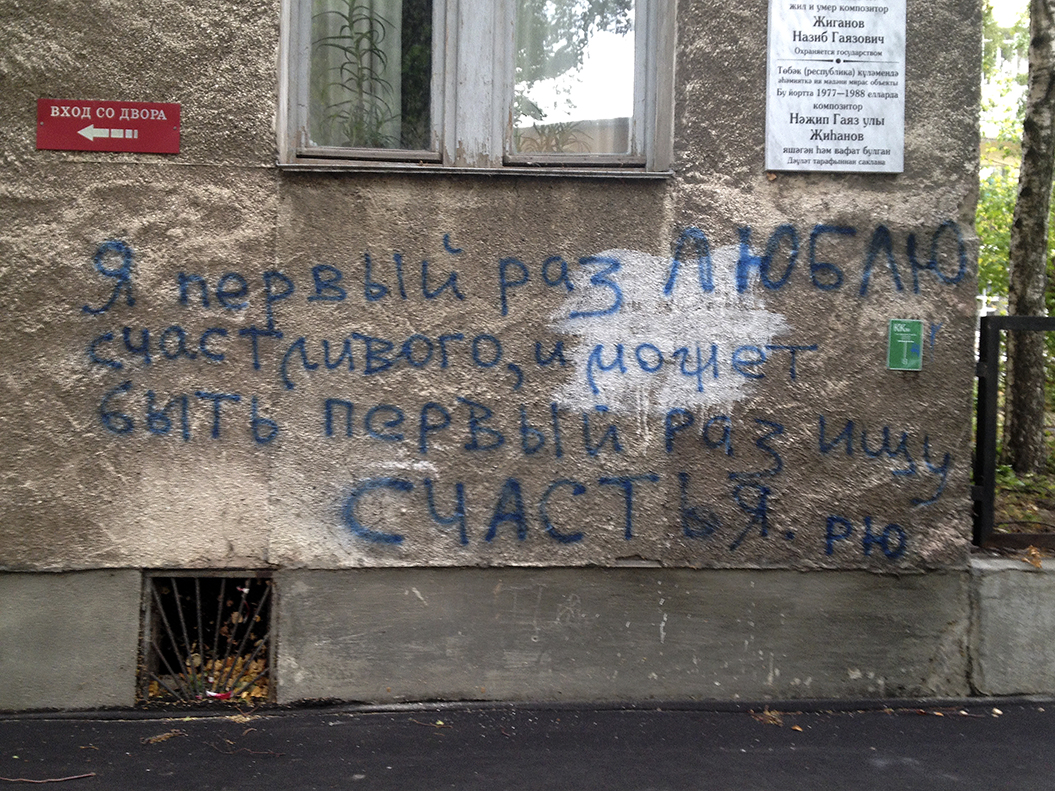 жил и умер композитор
Жиганов
Назиб Гаязович
Охраняется государством
Төбәк (республика) күләмендә
әһәмияткә ия мәдәни мирас объекты
Бу йортта 1977—1988 елларда
композитор
Нәҗип Гаяз улы
Җиһанов
яшәгән һәм вафат булган
Дәүләт тарафыннан саклана
ВХОД СО ДВОРА
Я первый раз ЛЮБЛЮ
счастливого, и может
быть первый раз ищу
СЧАСТЬЯ. РЮ
КК
Т